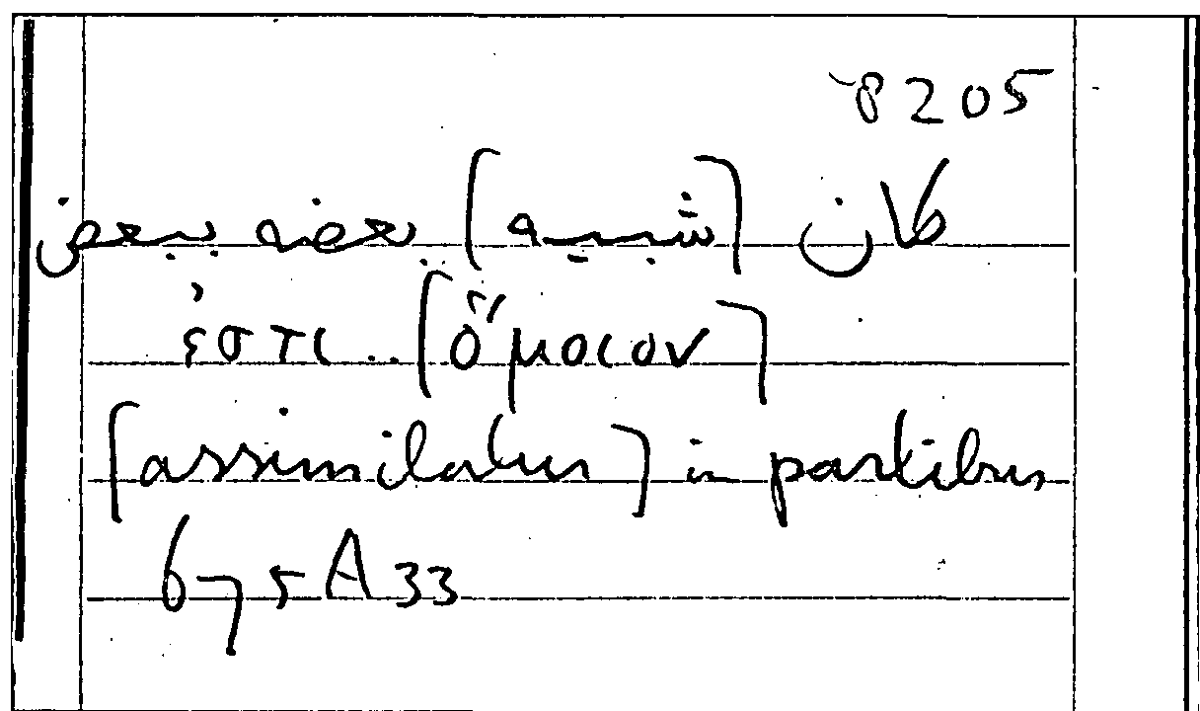 8205
كان [شبيه] بعضه ببعض
ἐστι .. [ὅμοιον]
[assimilatur] in partibus
675A33